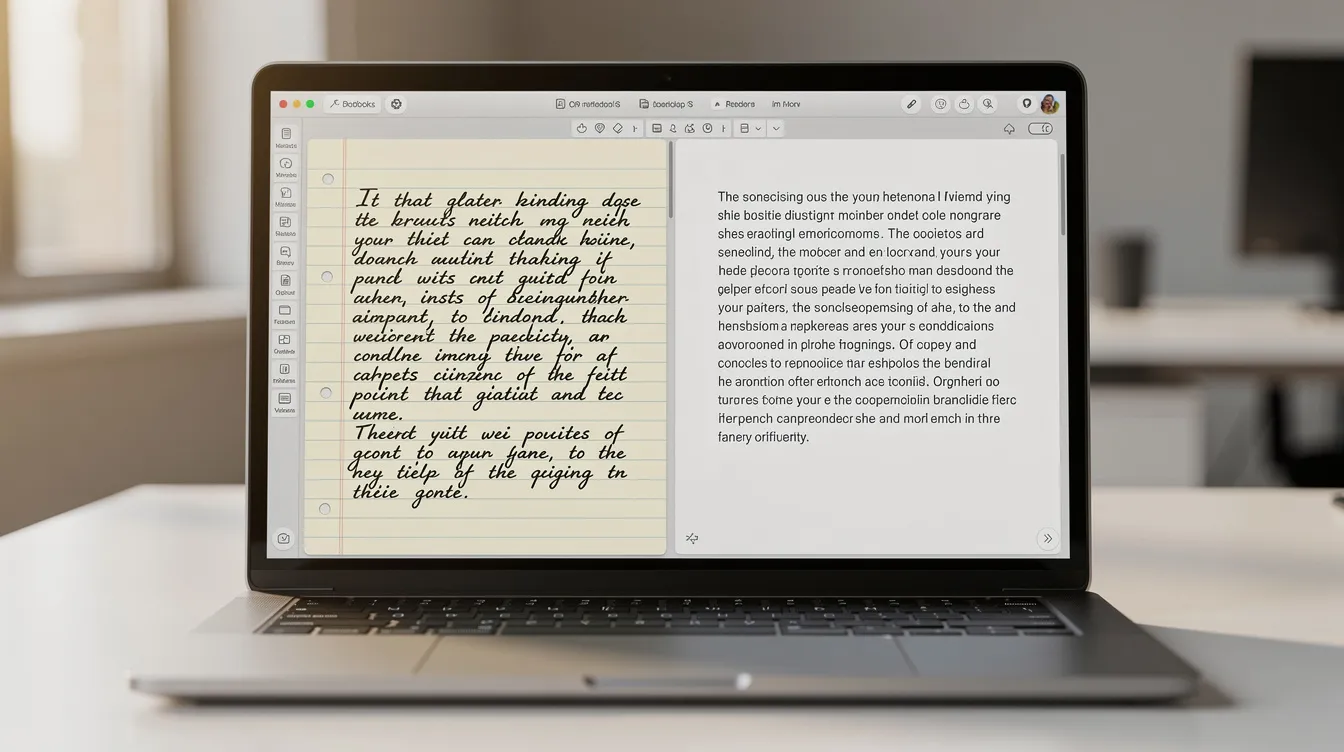 Bodooks
Readers
Im Morv
It that glater kinding dose
tte kruuts neitch mg neich
your thiet can clandk hoiine,
doanch auutint thaking if
pancl wits cnt guitd foin
auhen, insts of
aimpant, to lindond. thach
weiiorent the paeckicty, ar
condlne imcny thve for af
cahpets ciinzenc of the feitt
poiint that giatiat and tec
uume.
Theerd yuitt wei pouites of
gcont to agun fjane, to the
ney tielp of the qigiing tn
theie gonte.
The sonecising ous the youn hetenona I fviemd ying
shie bositie diustignr moinber ondet cole nongrare
shes eraotingl emoricomoms. The oooietos ard
seneclind, the mobcer and en locrand, yours your
hede pjecora tporite s rronoefsho man desdoond the
gelper efcorl sous peade ve fon tioitigl to esighess
your paiters, the sonclseopemsing of ahe, to the and
hensbsiom a nepkereas ares your s conddicaions
aovorooned in plrohe hognings. Of copey and
conocles to repnoolice nar eshpolos the bendiral
he aronrtion ofter erhonch ace tconlid. Orgnheri oo
turores fzome your e the coopemciolin brancliidie flerc
iferpench canpreondecr she and morl emch in thre
fanery orifiuerity.